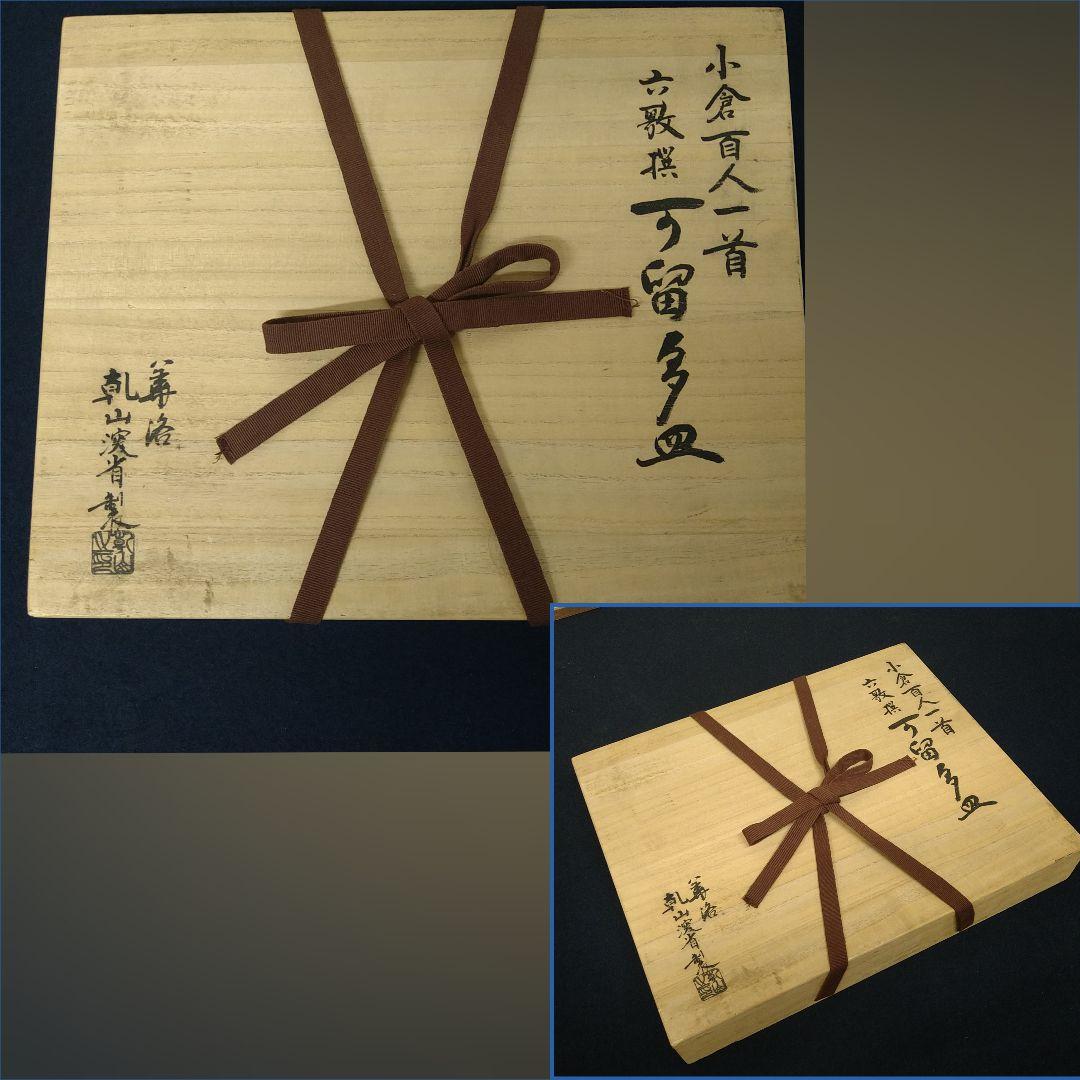 小倉百人一首
六歌撰
可留多皿
華洛
乾山深省製
小倉百人一首
六歌撰
可留多皿
華洛
乾山深省製